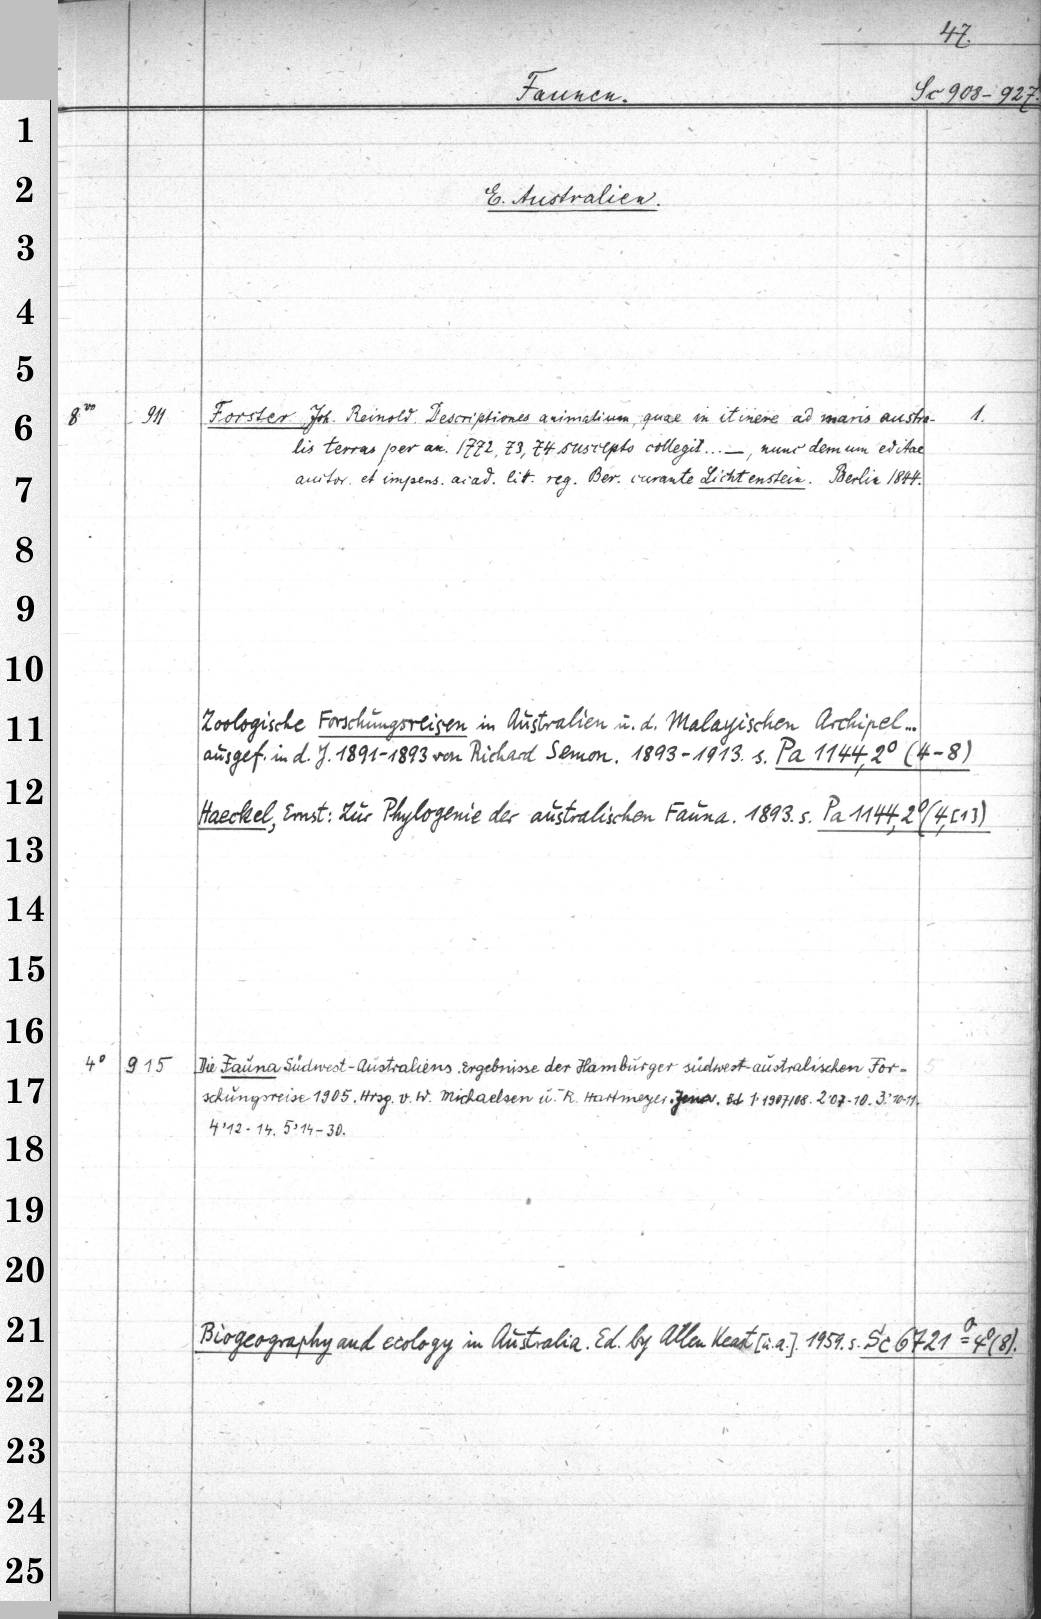 47.
Faunen. Sc 908-927.
1
2
E. Australien.
3
4
5
6
8vo 911 Forster Joh. Reinold. Descriptiones animalium, quae in itinere ad maris austra- 1.
lis terras per an. 1772, 73, 74 suscepto collegit...—, nunc demum editae
7
auctor. et impens. acad. litt. reg. Ber. curante Lichtenstein. Berlin 1844.
8
9
10
11
Zoologische Forschungsreisen in Australien u. d. Malayischen Archipel...
ausgef. in d. J. 1891-1893 von Richard Semon. 1893-1913. s. Pa 1144, 2° (4-8)
12
Haeckel, Ernst: Zur Phylogenie der australischen Fauna. 1893. s. Pa 1144, 2° (4,[1])
13
14
15
16
4° 915 Die Fauna Südwest-Australiens. Ergebnisse der Hamburger südwest-australischen For- 5
17
schungsreise 1905. Hrsg. v. W. Michaelsen u. R. Hartmeyer. Jena. Bd 1: 1907/08. 2:'07-10. 3:'10-11.
4:'12-14. 5:'14-30.
18
19
20
21
Biogeography and ecology in Australia. Ed. by Allen Keast [u.a.]. 1959. s. Sc 6721 = 4°(8).
22
23
24
25